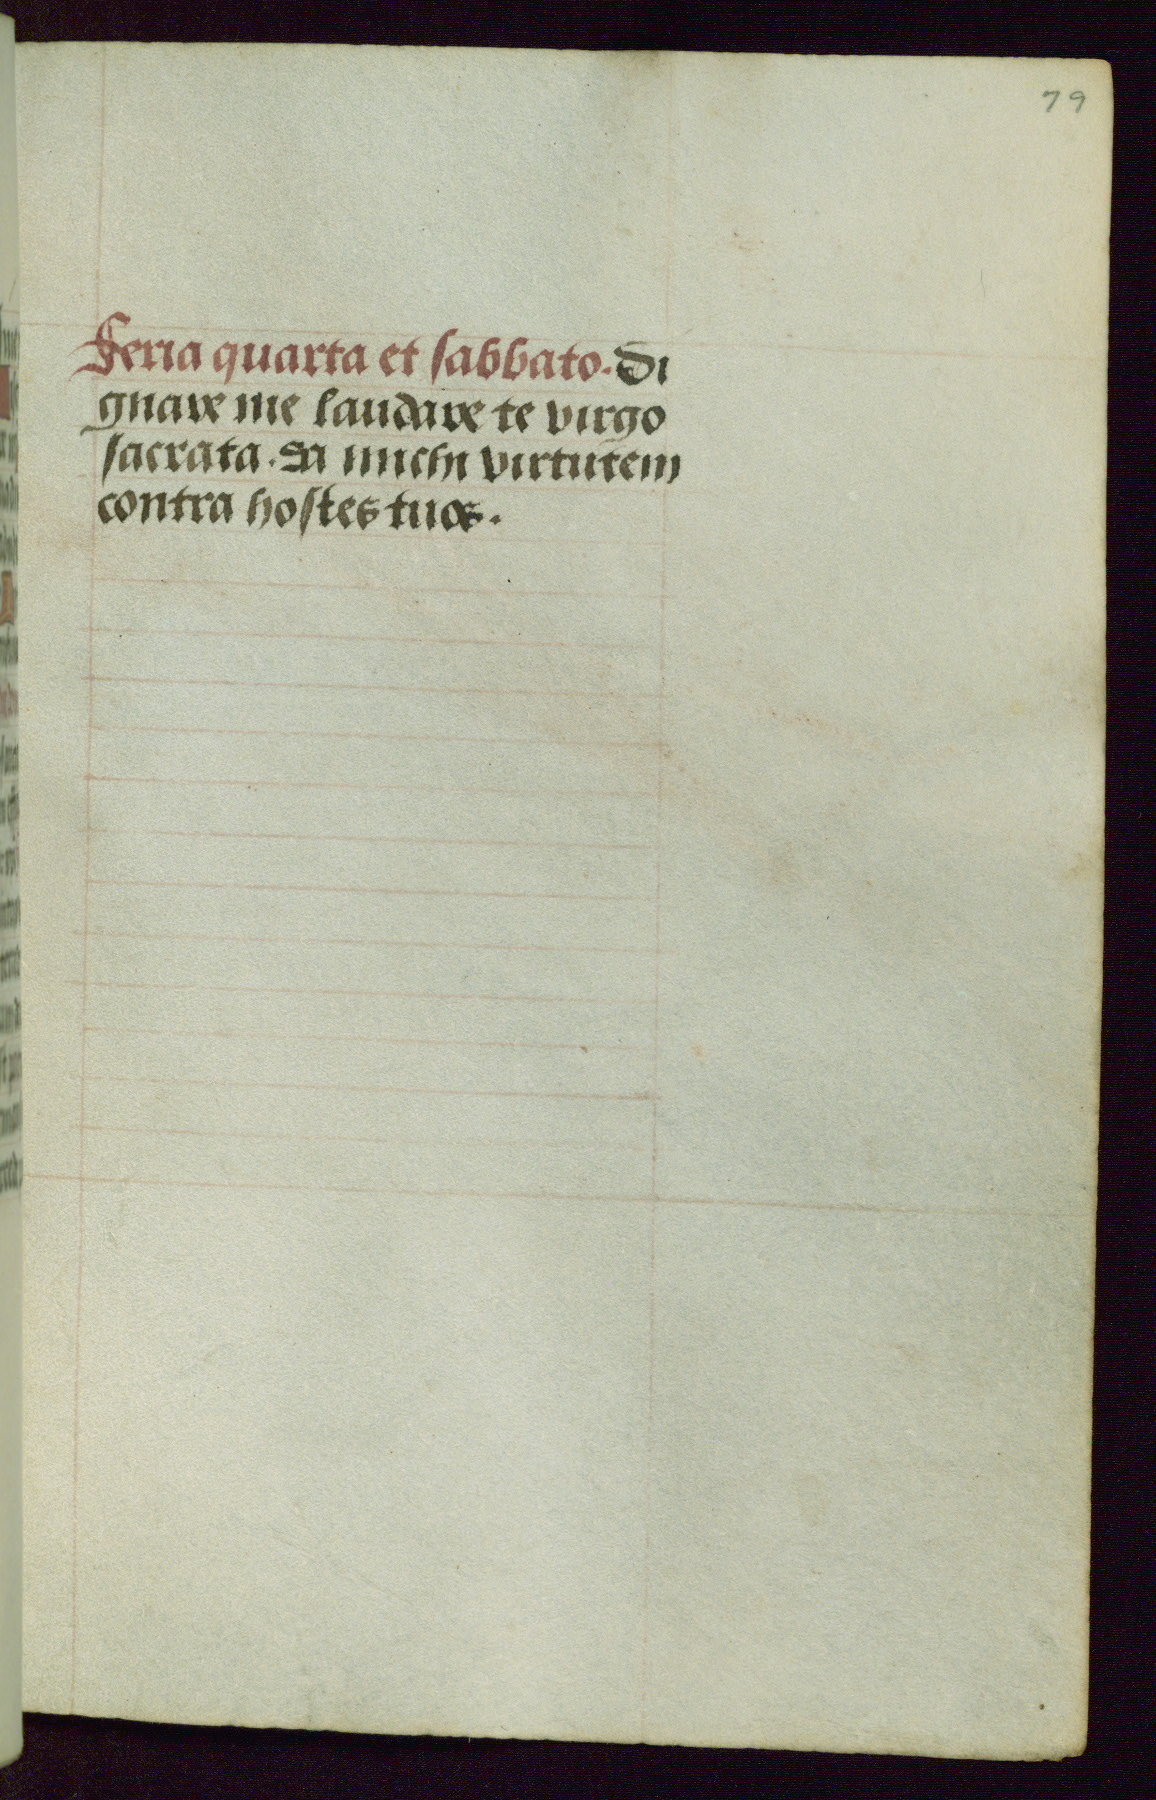 79
Feria quarta et sabbato. Di
gnare me laudare te virgo
sacrata. Da michi virtutem
contra hostes tuos.